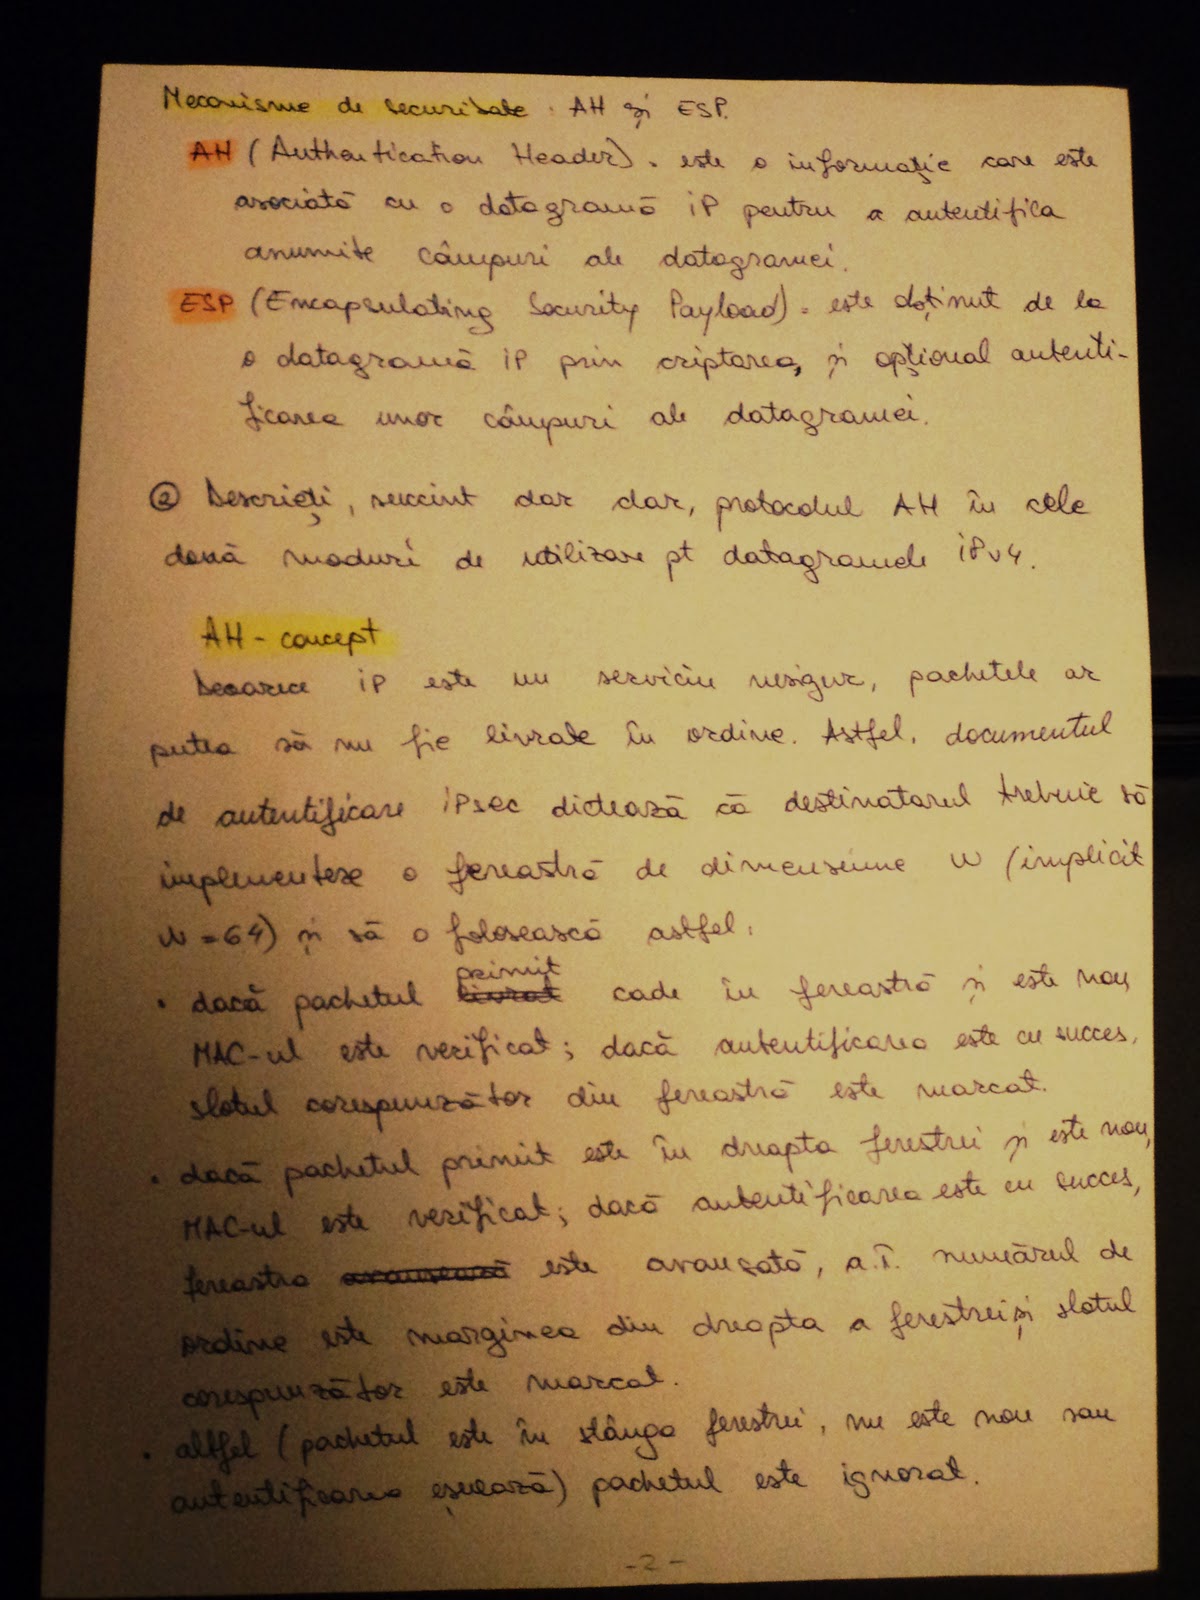 Mecanisme de securitate: AH și ESP.
AH (Authentication Header) - este o informație care este
asociată cu o datagramă IP pentru a autentifica
anumite câmpuri ale datagramei.
ESP (Encapsulating Security Payload) - este obținut de la
o datagramă IP prin criptarea, și opțional autenti-
ficarea unor câmpuri ale datagramei.
② Descrieți, succint dar clar, protocolul AH în cele
două moduri de utilizare pt datagramele IPv4.
AH - concept
Deoarece IP este un serviciu nesigur, pachetele ar
putea să nu fie livrate în ordine. Astfel, documentul
de autentificare IPsec dictează că destinatarul trebuie să
implementeze o fereastră de dimensiune W (implicit
W = 64) și să o folosească astfel:
• dacă pachetul livrat primit cade în fereastră și este nou,
MAC-ul este verificat; dacă autentificarea este cu succes,
slotul corespunzător din fereastră este marcat.
• dacă pachetul primit este în dreapta ferestrei și este nou,
MAC-ul este verificat; dacă autentificarea este cu succes,
fereastra avansează este avansată, a.î. numărul de
ordine este marginea din dreapta a ferestrei și slotul
corespunzător este marcat.
• altfel (pachetul este în stânga ferestrei, nu este nou sau
autentificarea eșuează) pachetul este ignorat.
- 2 -